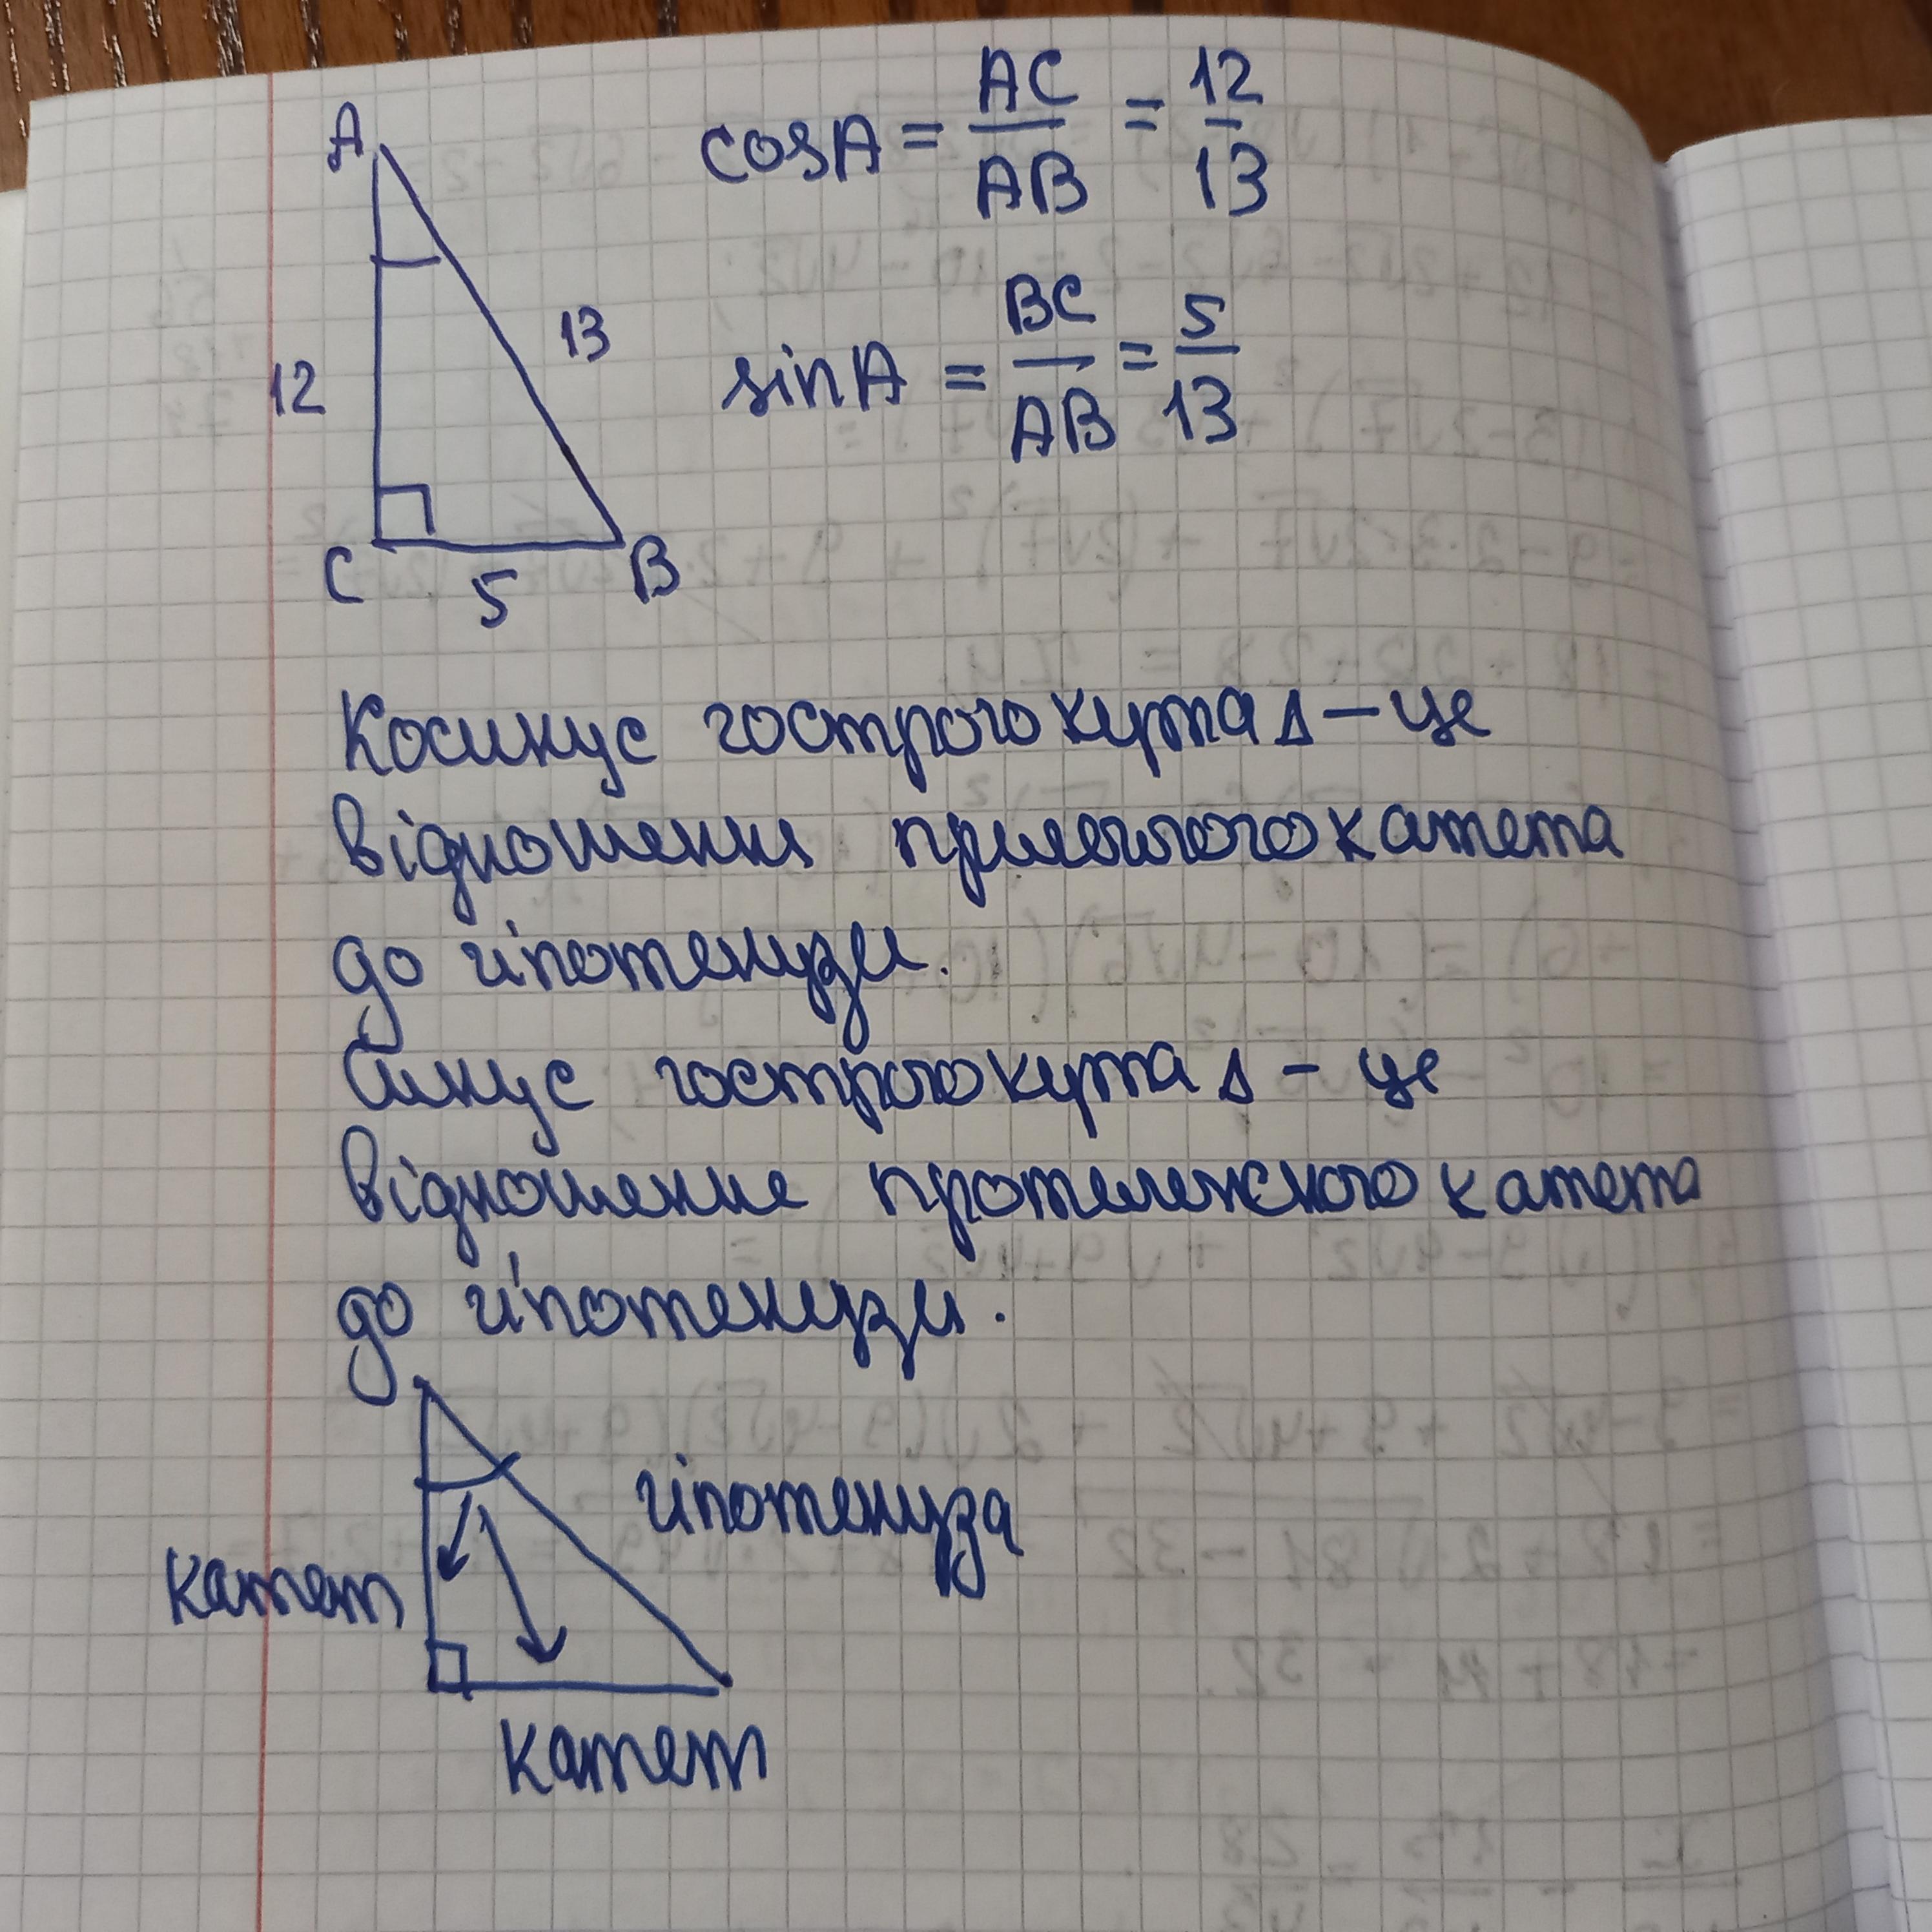 A
12
13
C
5
B
cosA = AC/AB = 12/13
sinA = BC/AB = 5/13
Косинус гострого кута Δ – це
відношення прилеглого катета
до гіпотенузи.
Синус гострого кута Δ – це
відношення протилежного катета
до гіпотенузи.
гіпотенуза
катет
катет